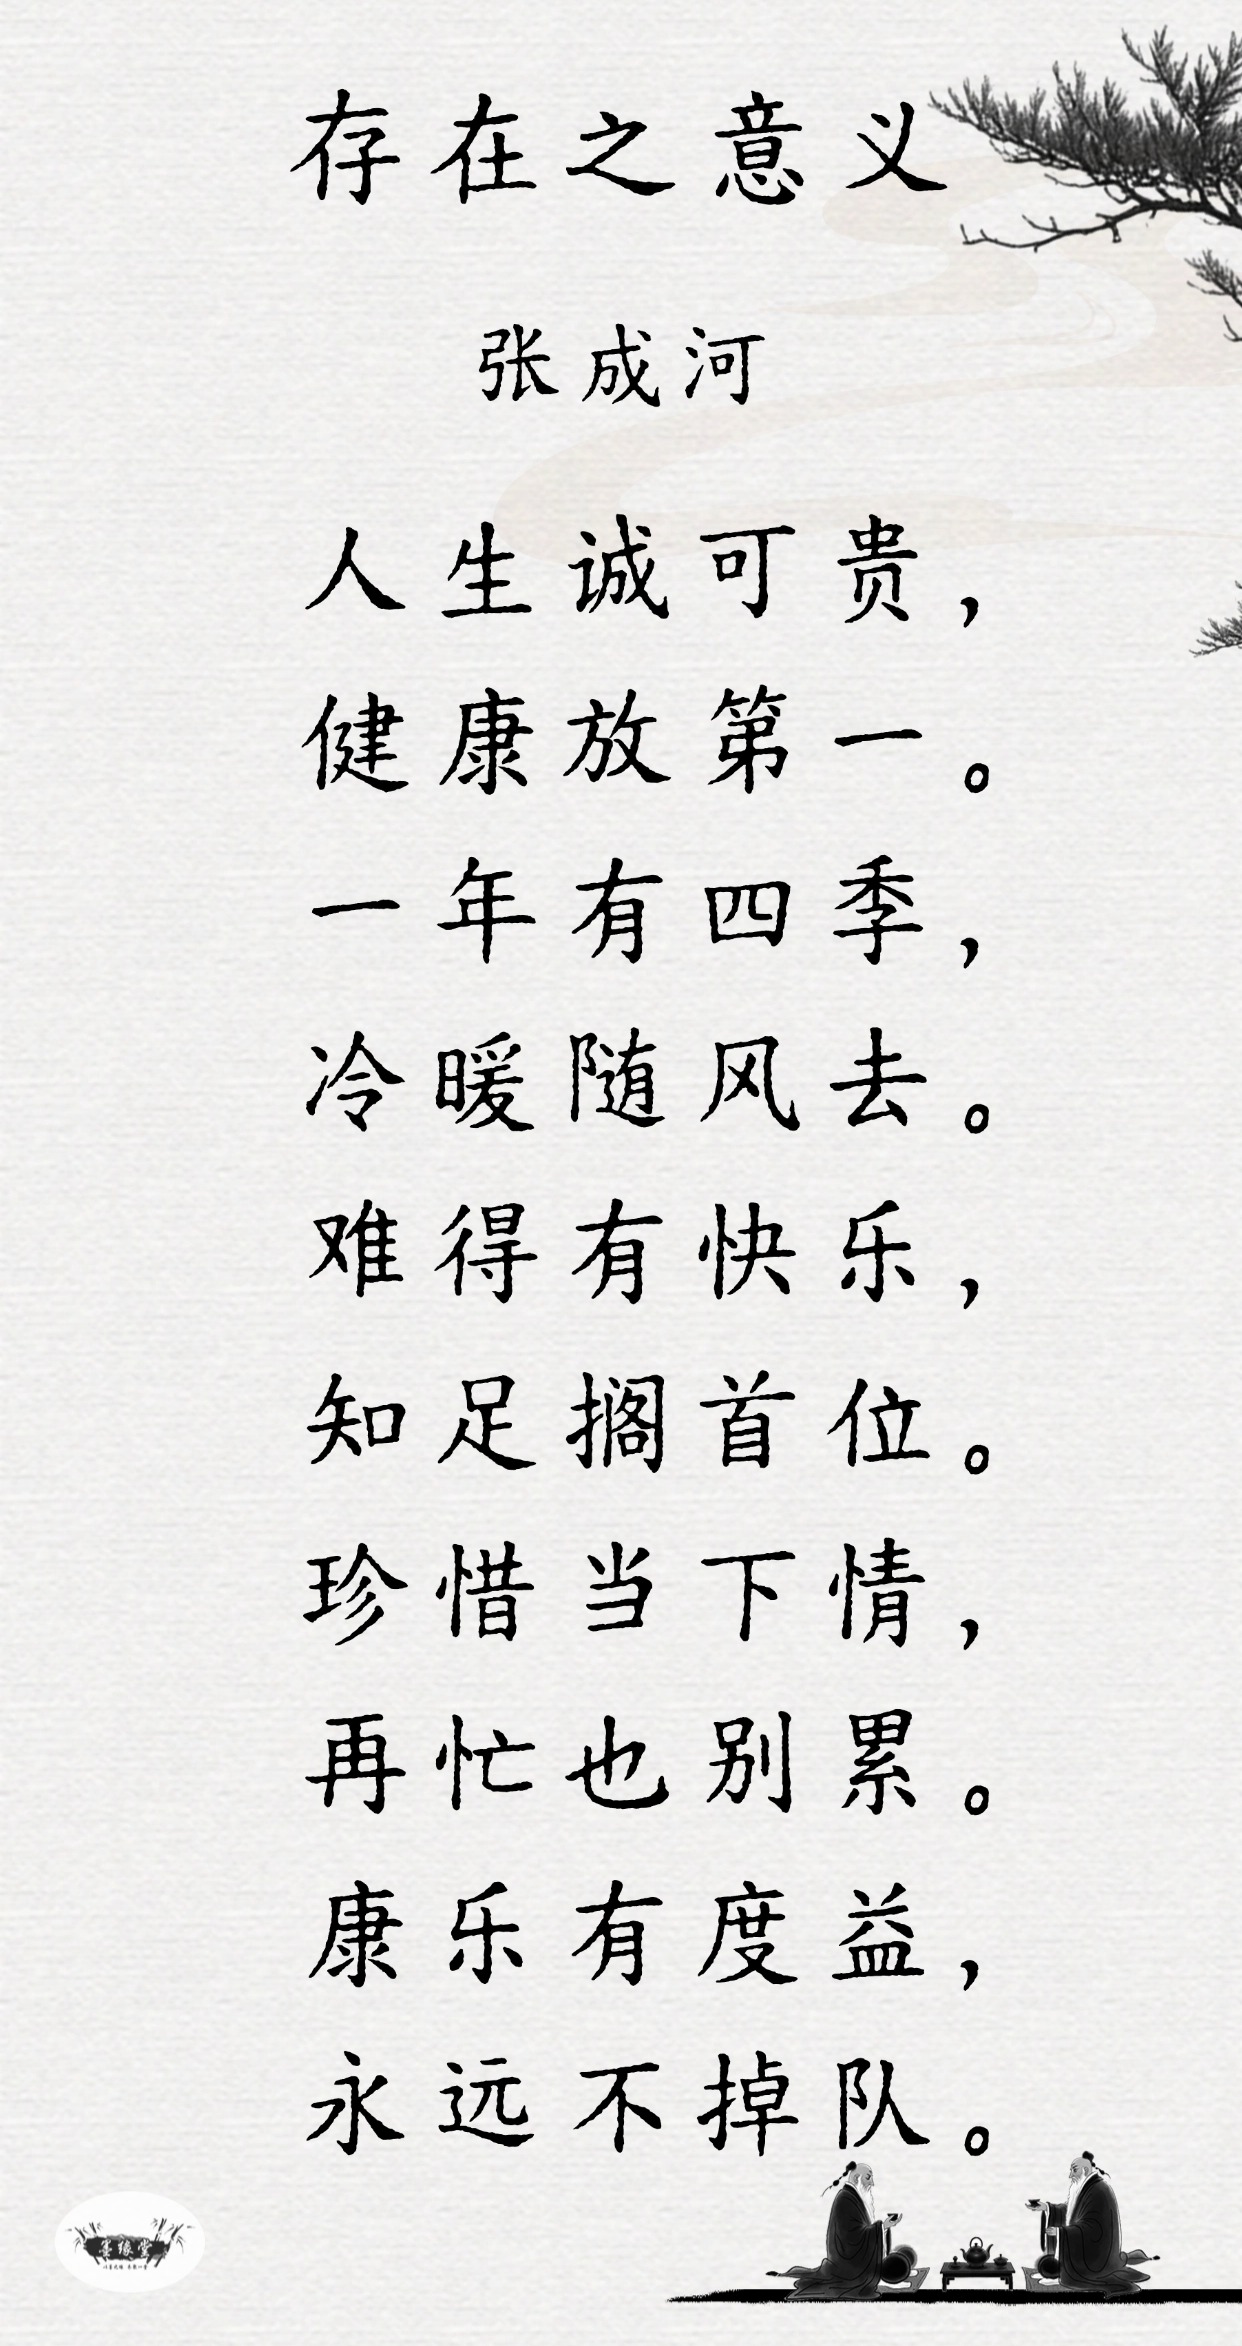 存在之意义
张成河
人生诚可贵，
健康放第一。
一年有四季，
冷暖随风去。
难得有快乐，
知足搁首位。
珍惜当下情，
再忙也别累。
康乐有度益，
永远不掉队。
墨缘堂